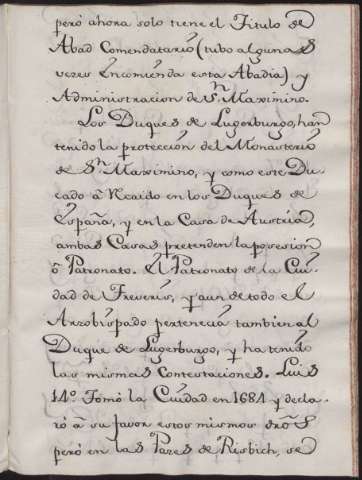 peró ahora solo tiene el Titulo de
Abad Comendatario (tubo algunas
vezes Encomienda esta Abadia) y
Administracion de Sn. Maximino.
Los Duques de Lugerburgo, han
tenido la protección del Monasterio
de Sn. Maximino, y como este Du
cado á Recaido en los Duques de
España, y en la Casa de Austria,
ambas Casas pretenden la posesion
ó Patronato. El Patronato de la Ciu-
dad de Treveris, y aun de todo el
Arzobispado pertenecia tambien al
Duque de Lugerburgo, y ha tenido
las mismas Contestaciones. Luis
14º. Tomó la Ciudad en 1681 y decla-
ró á su favor estos mismos dros
peró en las Pazes de Risbich, se